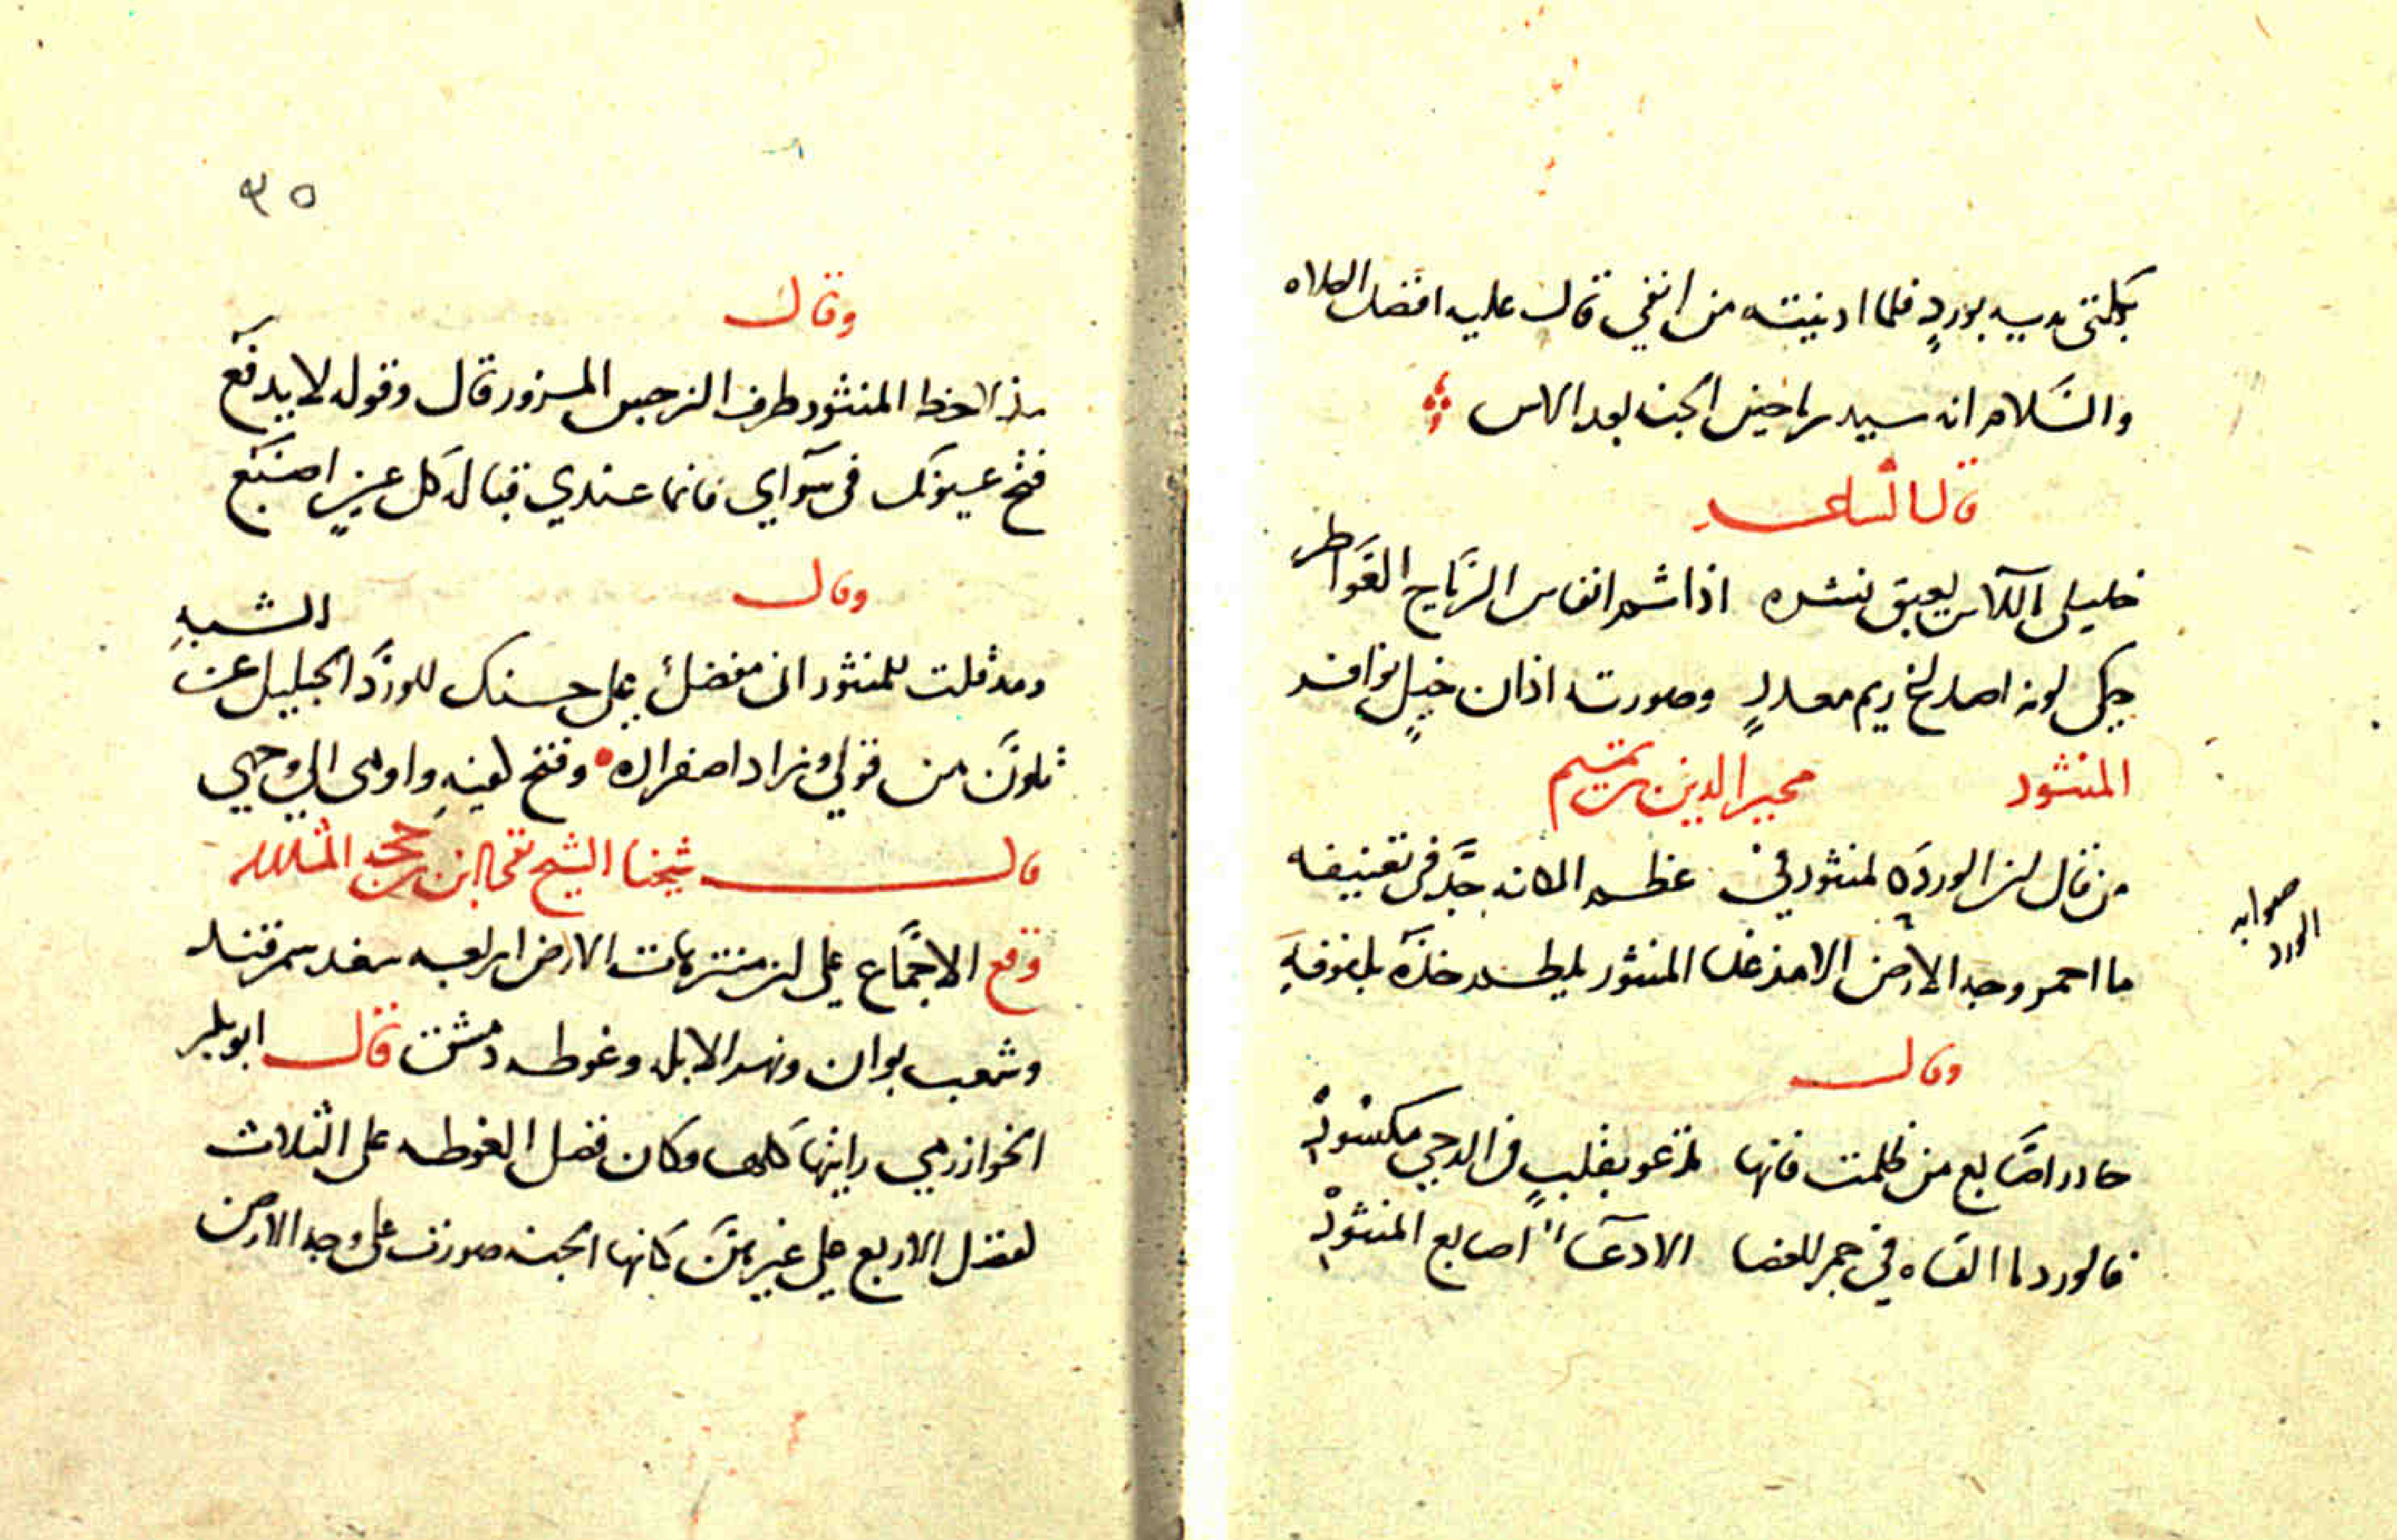 بكلتي يديه بورد فلما ادنيته من انفي قال عليه افضل الصلاه
والسلام انه سيد رياحين الجنه بعد الاس
قال الشاعر
خليلي ما للآس يعبق نشره اذا شم انفاس الرياح العواطر
حكى لونه اصداغ ريم معذر وصورته اذان خيل نوافر
المنثور مجير الدين بن تميم
من قال ان الورد كالمنثور في عظم المكانه جد في تعنيفه
صوابه
الورد
ما احمر وجه الارض الا مذ غدا المنثور يلطم خده بكفوفه
وقال
حاذر اصابع من ظلمت فانها تدعو بقلب في الدجى مكسور
فالورد ما القاه في جمر الغضا الا دعاء اصابع المنثور
٣٥
وقال
مذ لاحظ المنثور طرف النرجس المزور قال وقوله لا يدفع
فتح عيونك في سواي فانما عندي قبالة كل عين اصبع
وقال
وقد قلت للمنثور اني مفضل على حسنك للورد الجليل عن الشبه
تلون من قولي وزاد اصفراره وفتح كفيه واومى الى وجهي
قال شيخنا الشيخ تقي الدين بن حجه
وقع الاجماع على ان منتزهات الارض اربعه سغد سمرقند
وشعب بوان ونهر الابله وغوطه دمشق قال ابو بكر
الخوارزمي رايتها كلها وكان فضل الغوطه على الثلاث
كفضل الاربع على غيرهن كانها الجنه صورت على وجه الارض